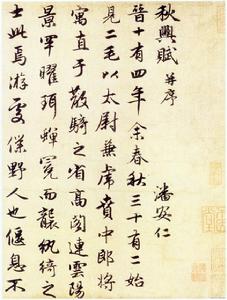 秋興賦 并序
潘安仁
晉十有四年余春秋三十有二始
見二毛以太尉兼虎賁中郎將
寓直于散騎之省高閣連雲陽
景罕曜珥蟬冕而襲紈綺之
士此焉游處僕野人也偃息不